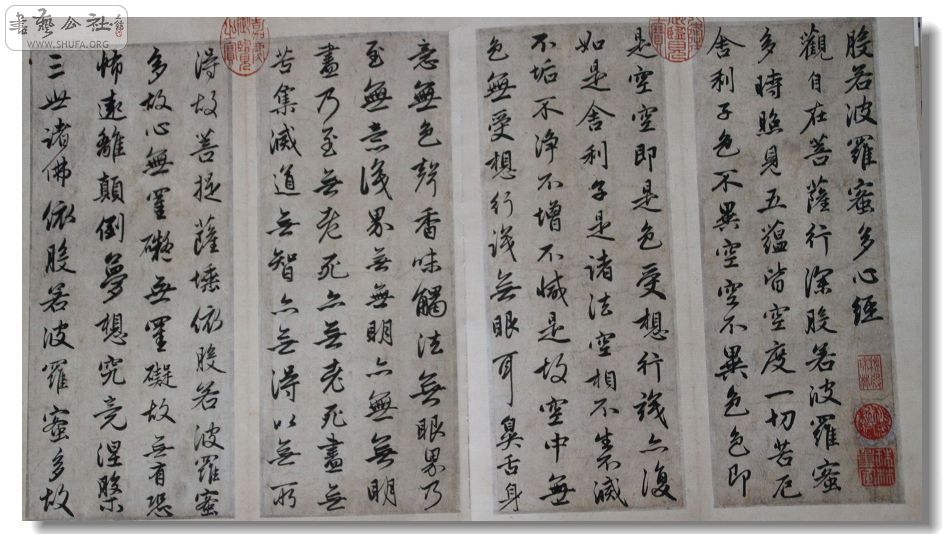 般若波羅蜜多心經
觀自在菩薩行深般若波羅蜜
多時照見五蘊皆空度一切苦厄
舍利子色不異空空不異色色即
是空空即是色受想行識亦復
如是舍利子是諸法空相不生滅
不垢不淨不增不減是故空中無
色無受想行識無眼耳鼻舌身
意無色聲香味觸法無眼界乃
至無意識界無無明亦無無明
盡乃至無老死亦無老死盡無
苦集滅道無智亦無得以無所
得故菩提薩埵依般若波羅蜜
多故心無罣礙無罣礙故無有恐
怖遠離顛倒夢想究竟涅槃
三世諸佛依般若波羅蜜多故
書藝公社
WWW.SHUFA.ORG